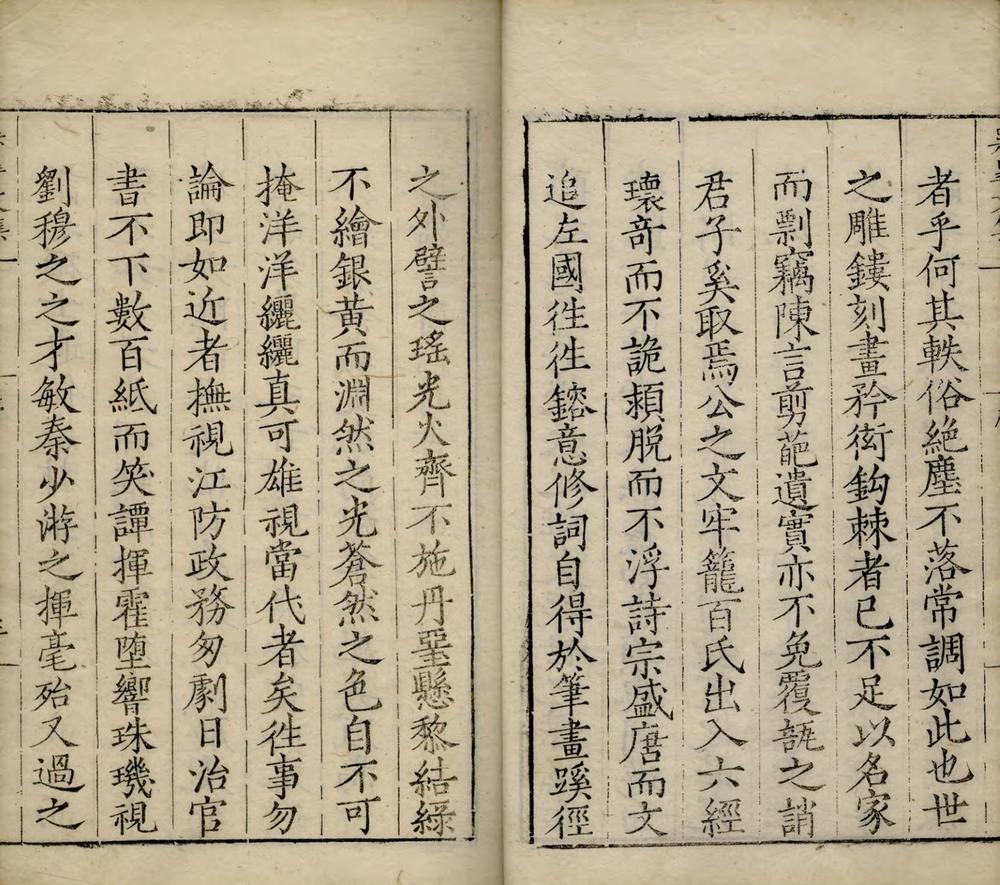 者乎何其軼俗絶塵不落常調如此也世
之雕鏤刻畫矜衒鈎棘者已不足以名家
而剽竊陳言剪葩遺實亦不免覆瓿之誚
君子奚取焉公之文牢籠百氏出入六經
瓌竒而不詭頴脱而不浮詩宗盛唐而文
追左國徃徃鎔意修詞自得於筆畫蹊徑
之外譬之瑤光火齊不施丹堊懸黎結緑
不繪銀黄而淵然之光蒼然之色自不可
掩洋洋纚纚真可雄視當代者矣徃事勿
論即如近者撫視江防政務匆劇日治官
書不下數百紙而笑譚揮霍堕響珠璣視
劉穆之之才敏秦少游之揮毫殆又過之